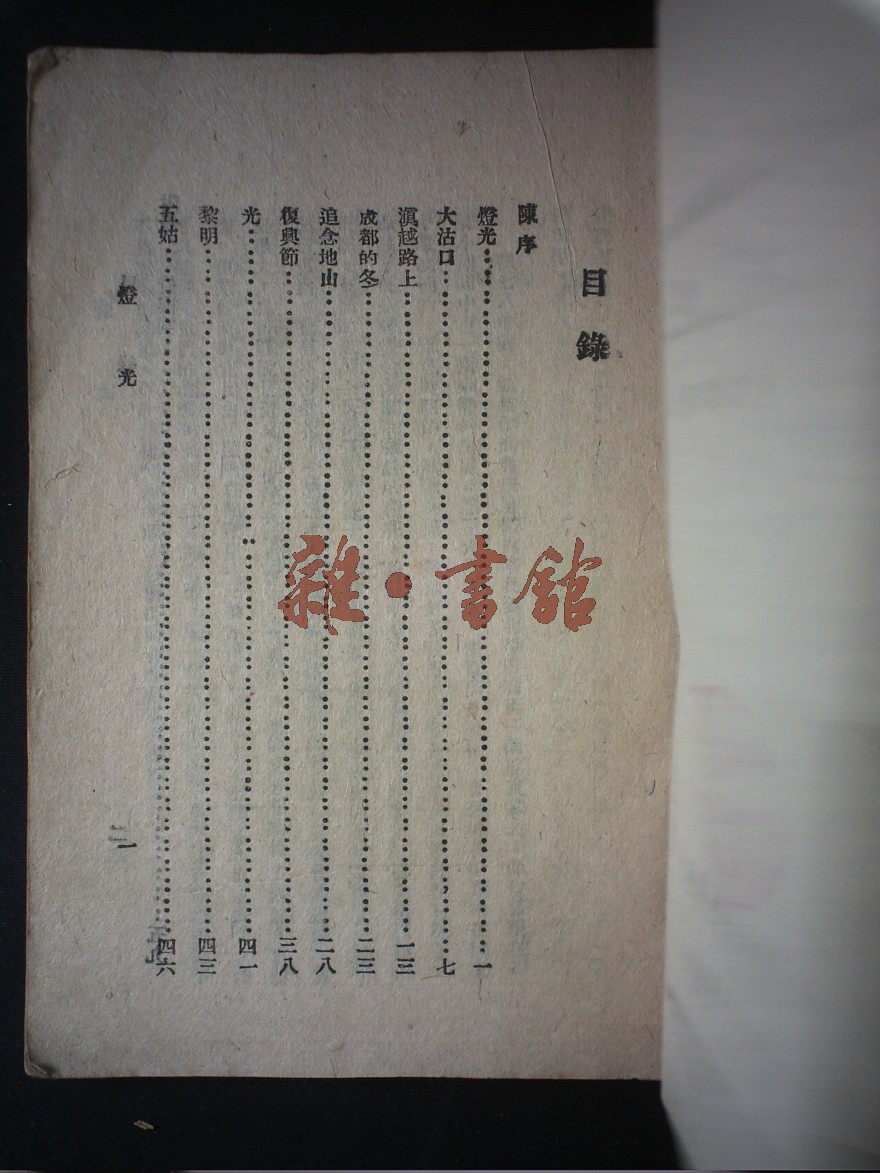 目錄
陳序
燈光……一
大沽口……七
滇越路上……一三
成都的冬……二三
追念地山……二八
復興節……三八
光……四一
黎明……四三
五姑……四六
燈光
一
雜·書館